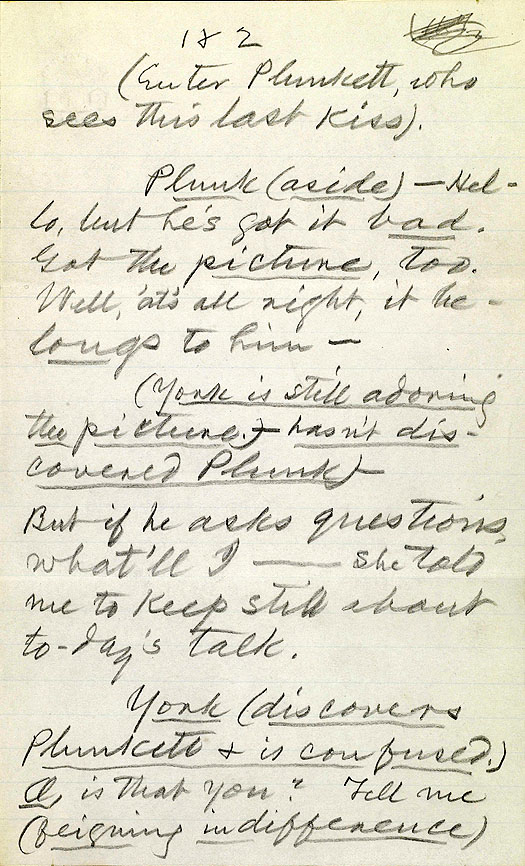 1 & 2
(Enter Plunkett, who
sees this last kiss).
Plunk (aside) — Hel-
lo, but he's got it bad.
Got the picture, too.
Well, 'at's all right, it be-
longs to him —
(York is still adoring
the picture.) — hasn't dis-
covered Plunk) —
But if he asks questions,
what'll I —— she told
me to keep still about
to-day's talk.
York (discovers
Plunkett & is confused.)
O, is that you? Tell me
(feigning indifference)